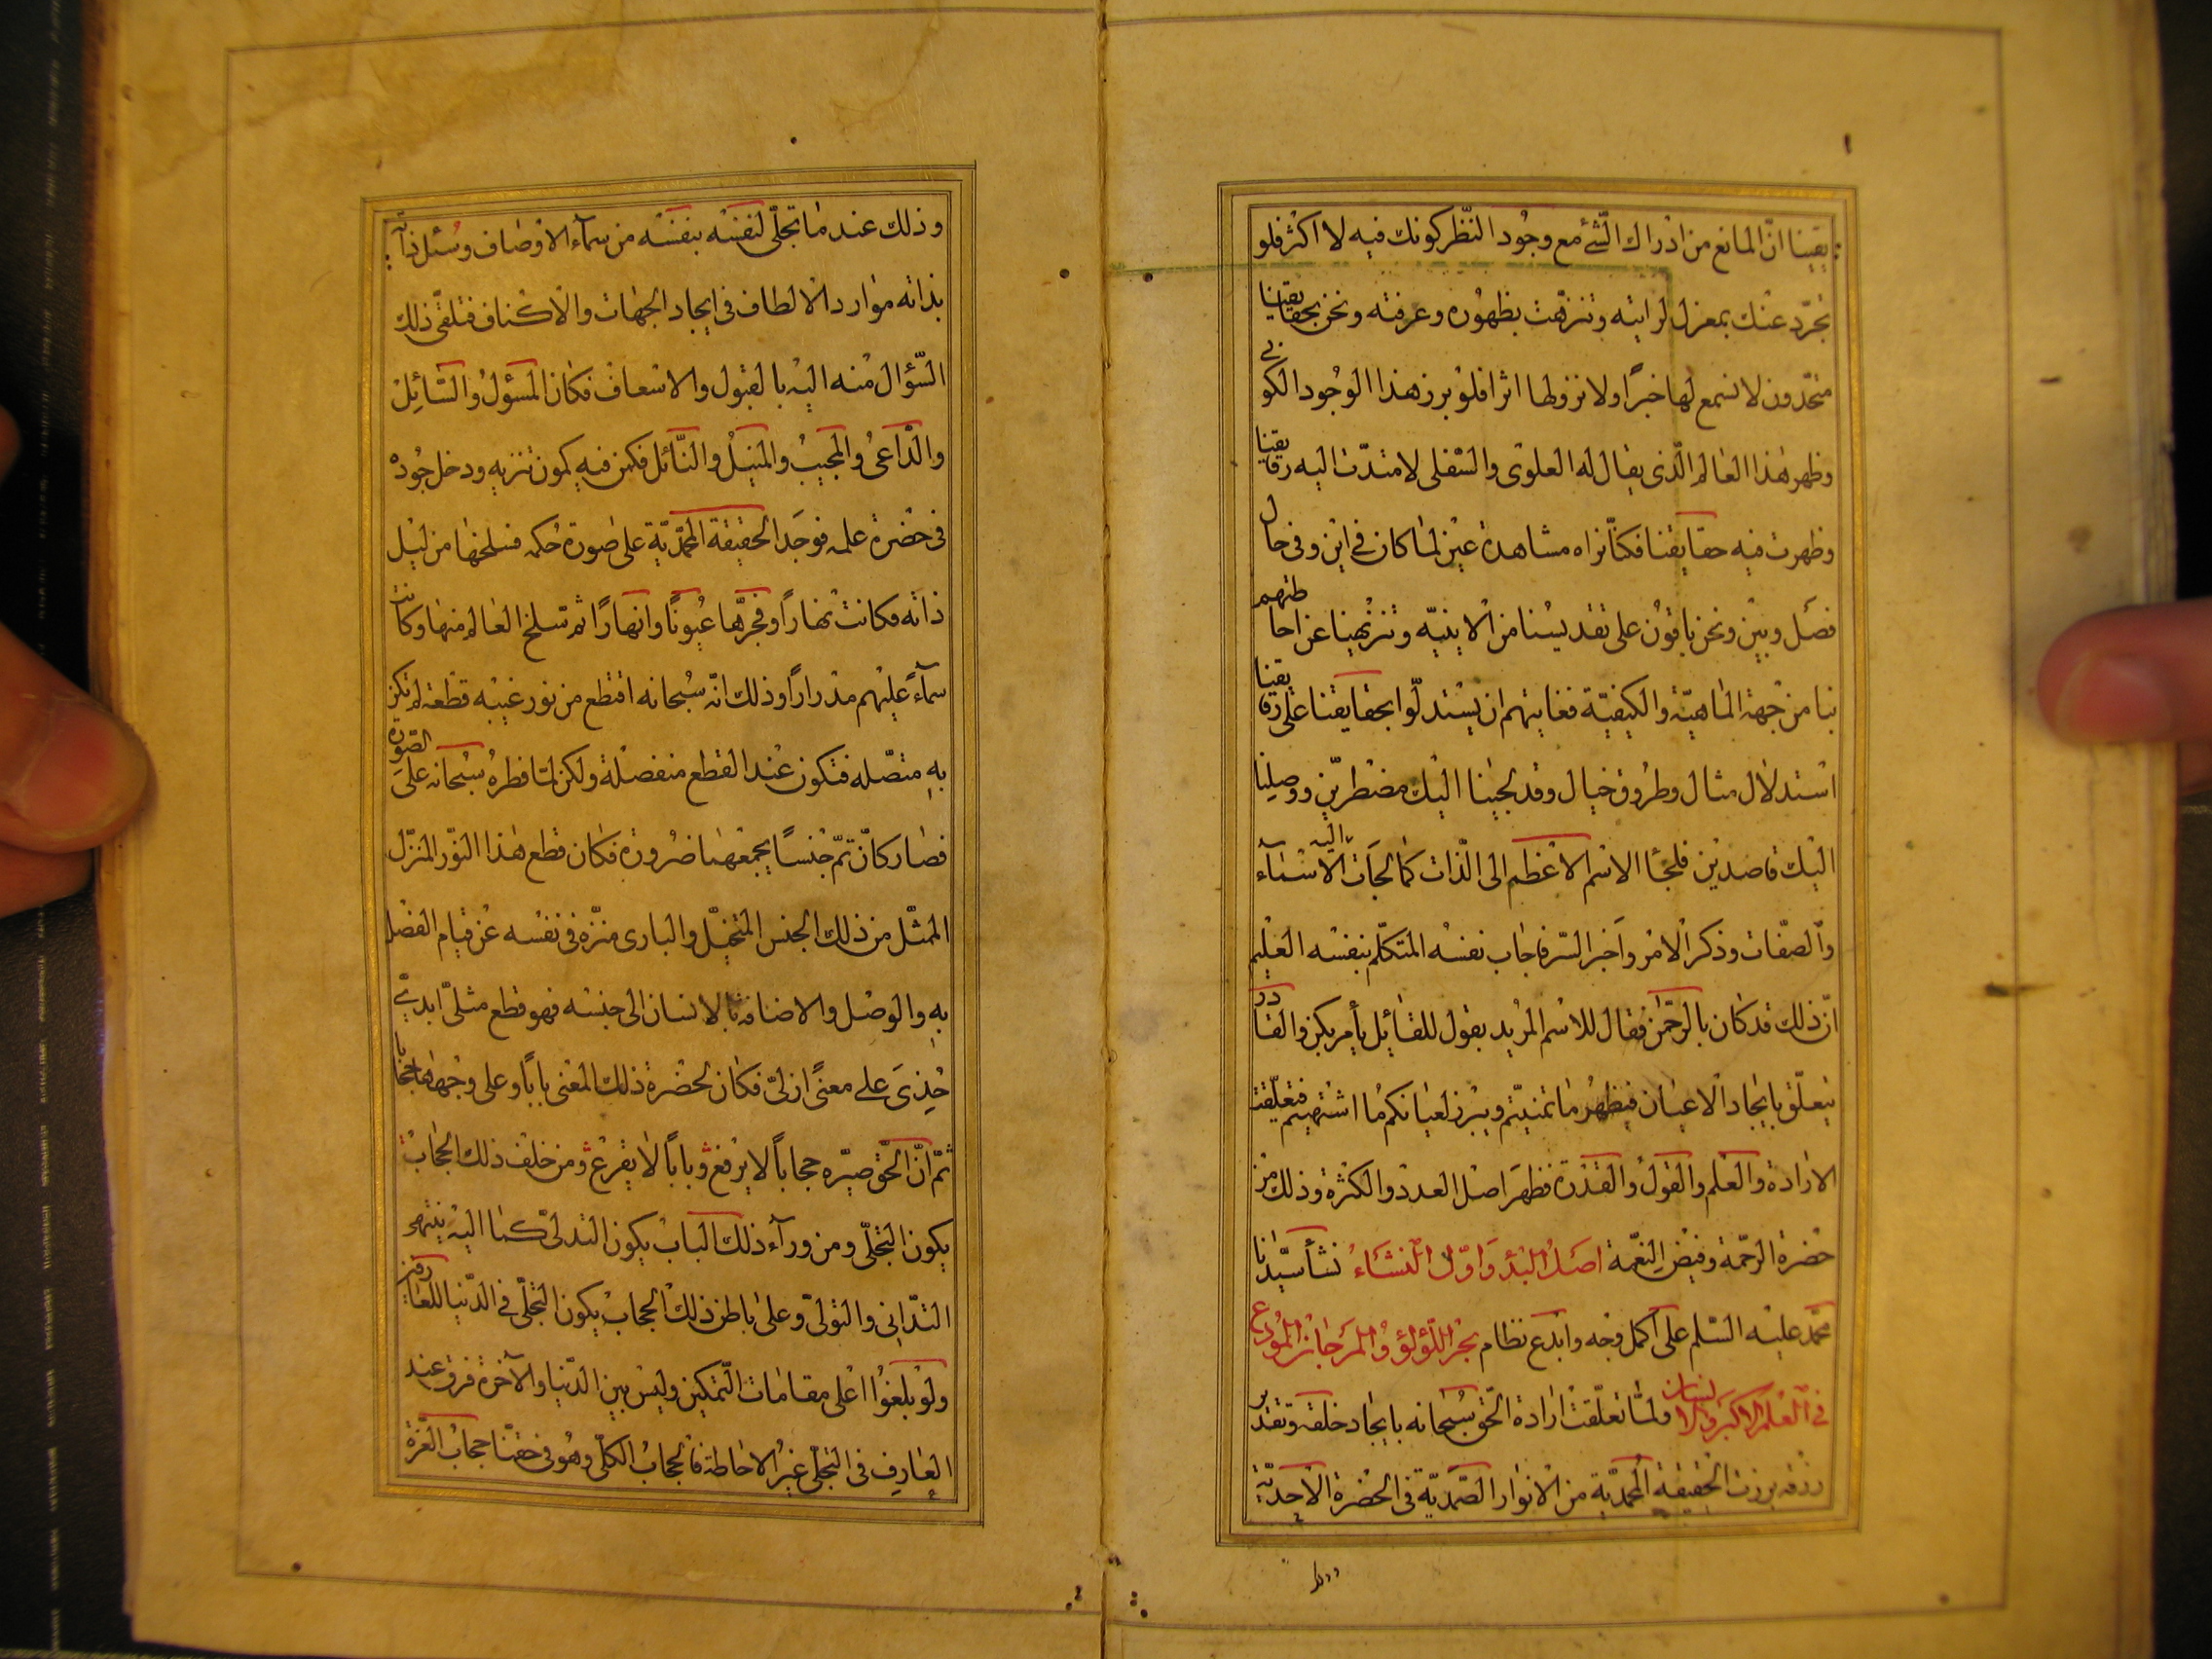 يقينا انّ المانع من ادراك الشّئ مع وجُود النّظر كونك فيه لا اكثر فلو
تجرّد عنك بمعزل لرايته وتنزّهت بظهُوره وعرفته ونحن بحقايقنا
متحدون لا نسمع لها خبرًا ولا نرولها اثرا فلو برز هذا الوجُود الكونى
وظهر هٰذا العالم الّذى يقال له العلوى والسّفلى لامتدّت اليه رقايقنا
وظهرت فيه حقايقنا فكنّا نراه مشاهدة عين لما كان فى اين وفى حال
فصل وبين ونحن باقون على تقديسنا من الاينيّه وتنزيهنا عن احاطتهم
بنا من جهة الماهيّة والكيفيّة فغايتهم ان يستدلّوا بحقايقنا على رقايقنا
استدلال مثال وطروق خيال وقد لجينا اليك مضطرّين ووصلنا
اليك قاصدين فلجأ الاسم الاعظم الى الذّات كما لجات اليه الاسمآء
والصّفات وذكر الامر واخبر السّر فاجاب نفسه المتكلّم بنفسه العليم
انّ ذلك قد كان بالرحمٰن فقال للاسم المريد يقول للقائل يأمر بكن والقادر
يتعلّق بايجاد الاعيان فيظهر ما تمنيتم ويبرز لعيانكم ما اشتهيتم فتعلّقت
الارادة والعلم والقول والقدرة فظهر اصل العدد والكثرة وذلك من
حضرة الرحمة وفيض النعمة اصل البدؤ واوّل النشاء نشأ سيّدنا
محمّد عليه السّلم على اكمل وجه وابدع نظام بحر اللّؤلؤ والمرجان المودع
فى العلم الاكبر والانسان ولمّا تعلّقت ارادة الحق سبحانه بايجاد خلقه وتقدير
رزقه برزت الحقيقة المحمديّة من الانوار الصّمديّة فى الحضرة الاحديّة
وذلك عند ما تجلّى لنفسه بنفسه من سمآء الاوصاف وسئل ذاته
بذاته موارد الالطاف فى ايجاد الجهات والاكناف فتلقّى ذلك
السّؤال منه اليه بالقبول والاسعاف فكان المسؤل والسّائل
والدّاعى والمجيب والمنيل والنّائل فكمن فيه كمون تنزيه ودخل جوده
فى حضرة علمه فوجد الحقيقة المحمّديّة على صورة حكمه فسلخها من ليل
ذاته فكانت نهارًا وفجّرها عيونًا وانهارًا ثم سلخ العالم منها وكانت
سمآءً عليهم مدرارًا وذلك انّه سبحانه اقتطع من نور غيبه قطعة لم تكن
به متصّله فتكون عند القطع منفصلة ولكن لمّا فطره سبحانه على الصورة
فصار كانّ ثمّ جنسًا يجمعهما ضرورة فكان قطع هذا النّور المنزّل
الممثّل من ذلك الجنس المتخيّل والبارى منزّه فى نفسه عن قيام الفصل
به والوصل والاضافة بالانسان الى جنسه فهو قطع مثلىّ ابدىّ
حُذى على معنًى ازلىّ فكان لحضرة ذلك المعنى بابًا وعلى وجهها حجابا
ثمّ انّ الحقّ صيّره حجابًا لا يرفع وبابًا لا يقرع ومن خلف ذلك الحجاب
يكون التجلّى ومن ورآء ذلك الباب يكون التدلىّ كما اليه ينتهى
التدّانى والتولىّ وعلى باطن ذلك الحجاب يكون التجلّى فى الدّنيا للعارفين
ولو بلغوا اعلى مقامات التّمكين وليس بين الدّنيا والآخرة فرق عند
العارف فى التجلّى غير الاحاطة فالحجاب الكلّى وهو فى حقّنا حجاب العزّة